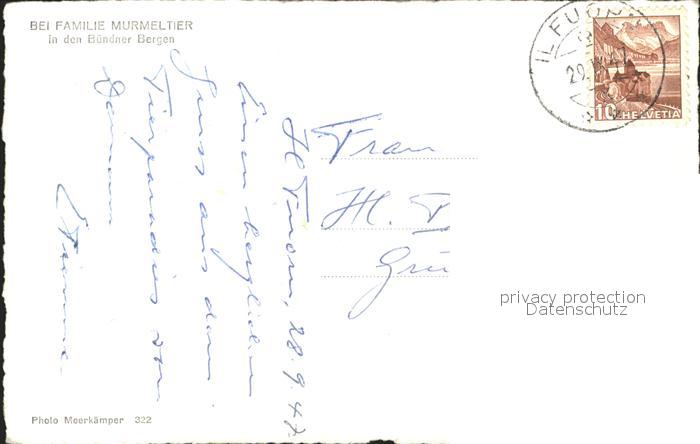 BEI FAMILIE MURMELTIER
in den Bündner Bergen
IL FUORN
HELVETIA
10
Il Fuorn, 28.9.47
Einen herzlichen
Gruss aus dem
Tierparadies von
Frau
H.
Grü
privacy protection
Datenschutz
Photo Meerkämper 322